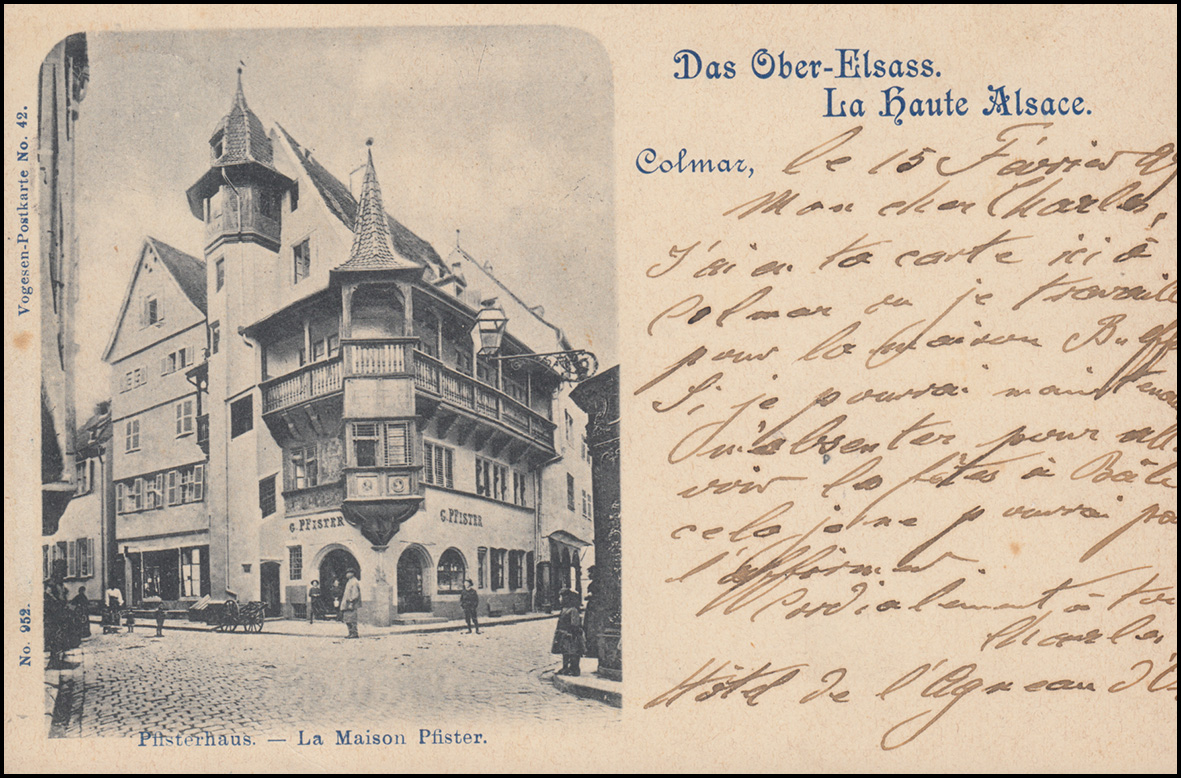 Das Ober-Elsass.
La Haute Alsace.
Colmar, le 15 Février
Mon cher Charles,
J'ai eu ta carte ici à
Colmar ou je travaille
pour la maison
Si je pourrai maintenant
m'absenter pour all
voir les fêtes à Bâle
cela je ne pourrai pas
l'affirmer.
Cordialement à toi
Charles
Hôtel de l'Agneau d'O
Vogesen-Postkarte No. 42.
No. 952.
G. PFISTER
G. PFISTER
Pfisterhaus. — La Maison Pfister.